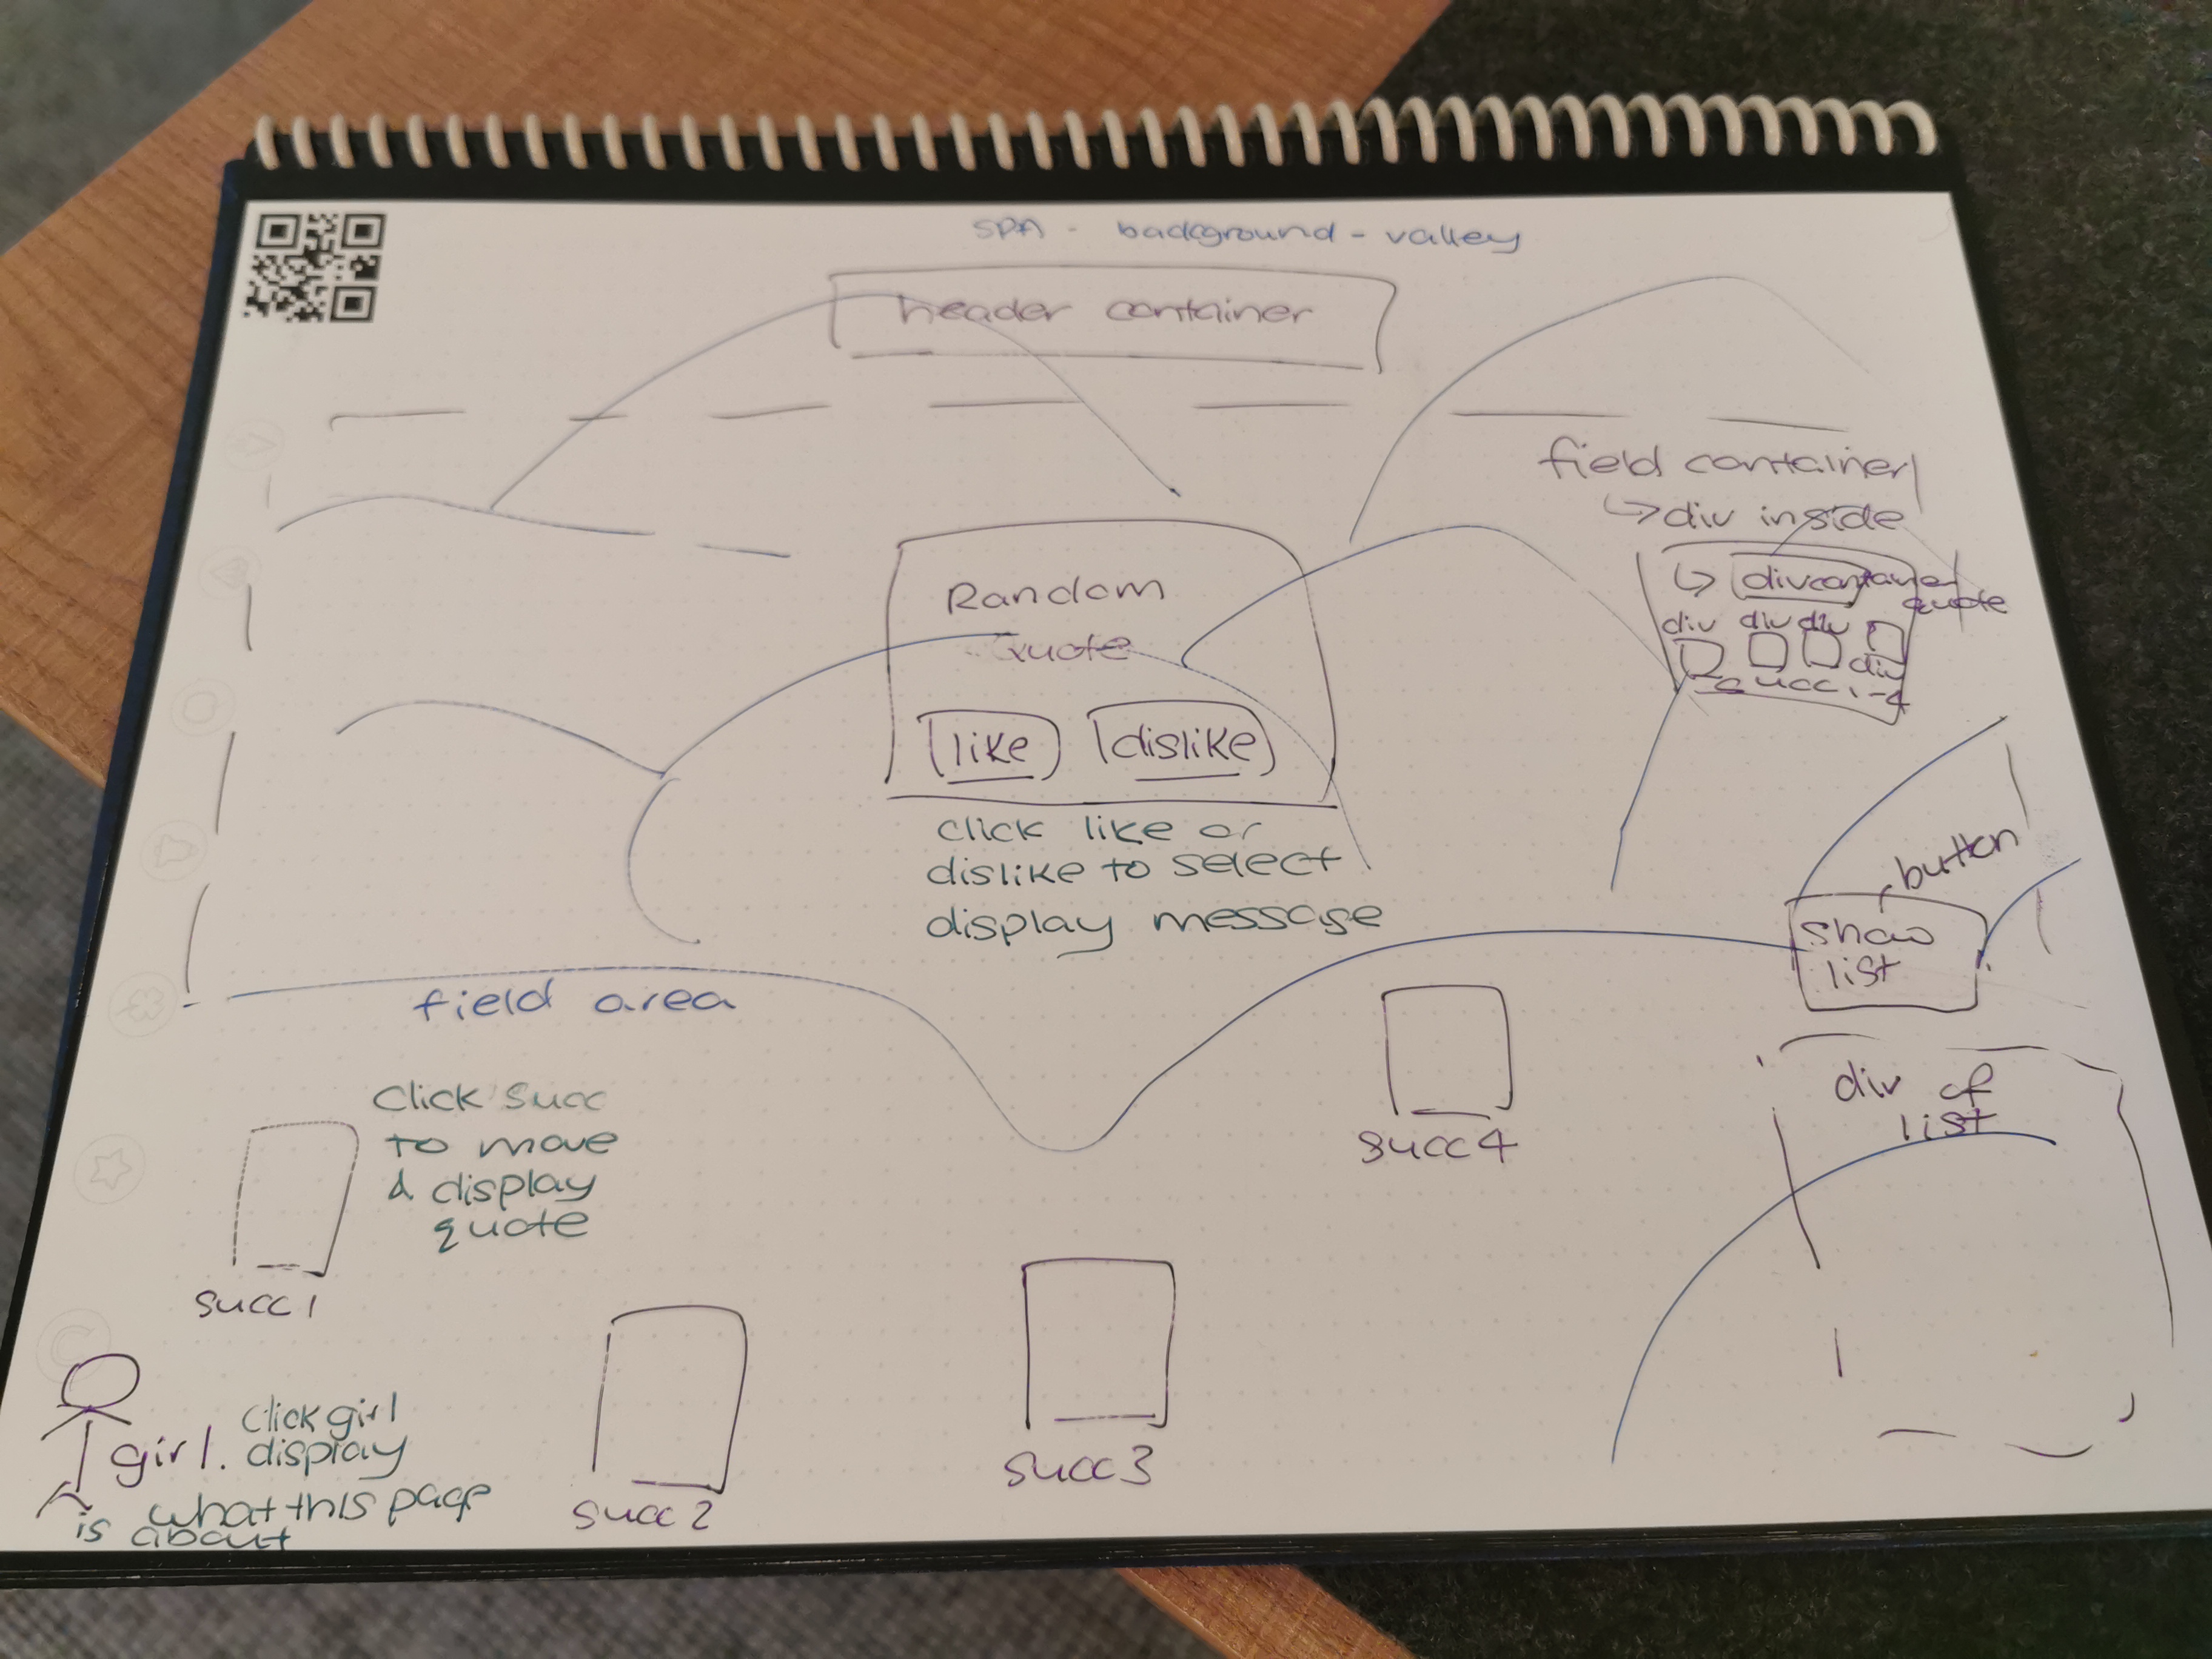 SPA - background - valley
header container
field container
↳ div inside
↳ div container
quote
div div div
div
succ 1-4
Random
Quote
like dislike
click like or
dislike to select
display message
button
show
list
field area
div of
list
Click Succ
to move
& display
quote
succ 1
succ 4
succ 3
succ 2
girl. Click girl
display
what this page
is about